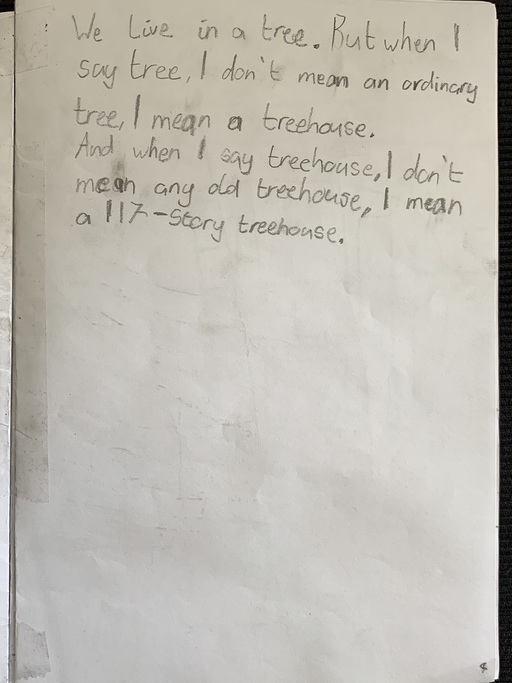 We Live in a tree. But when I
say tree, I don't mean an ordinary
tree, I mean a treehouse.
And when I say treehouse, I don't
mean any old treehouse, I mean
a 117-Story treehouse.